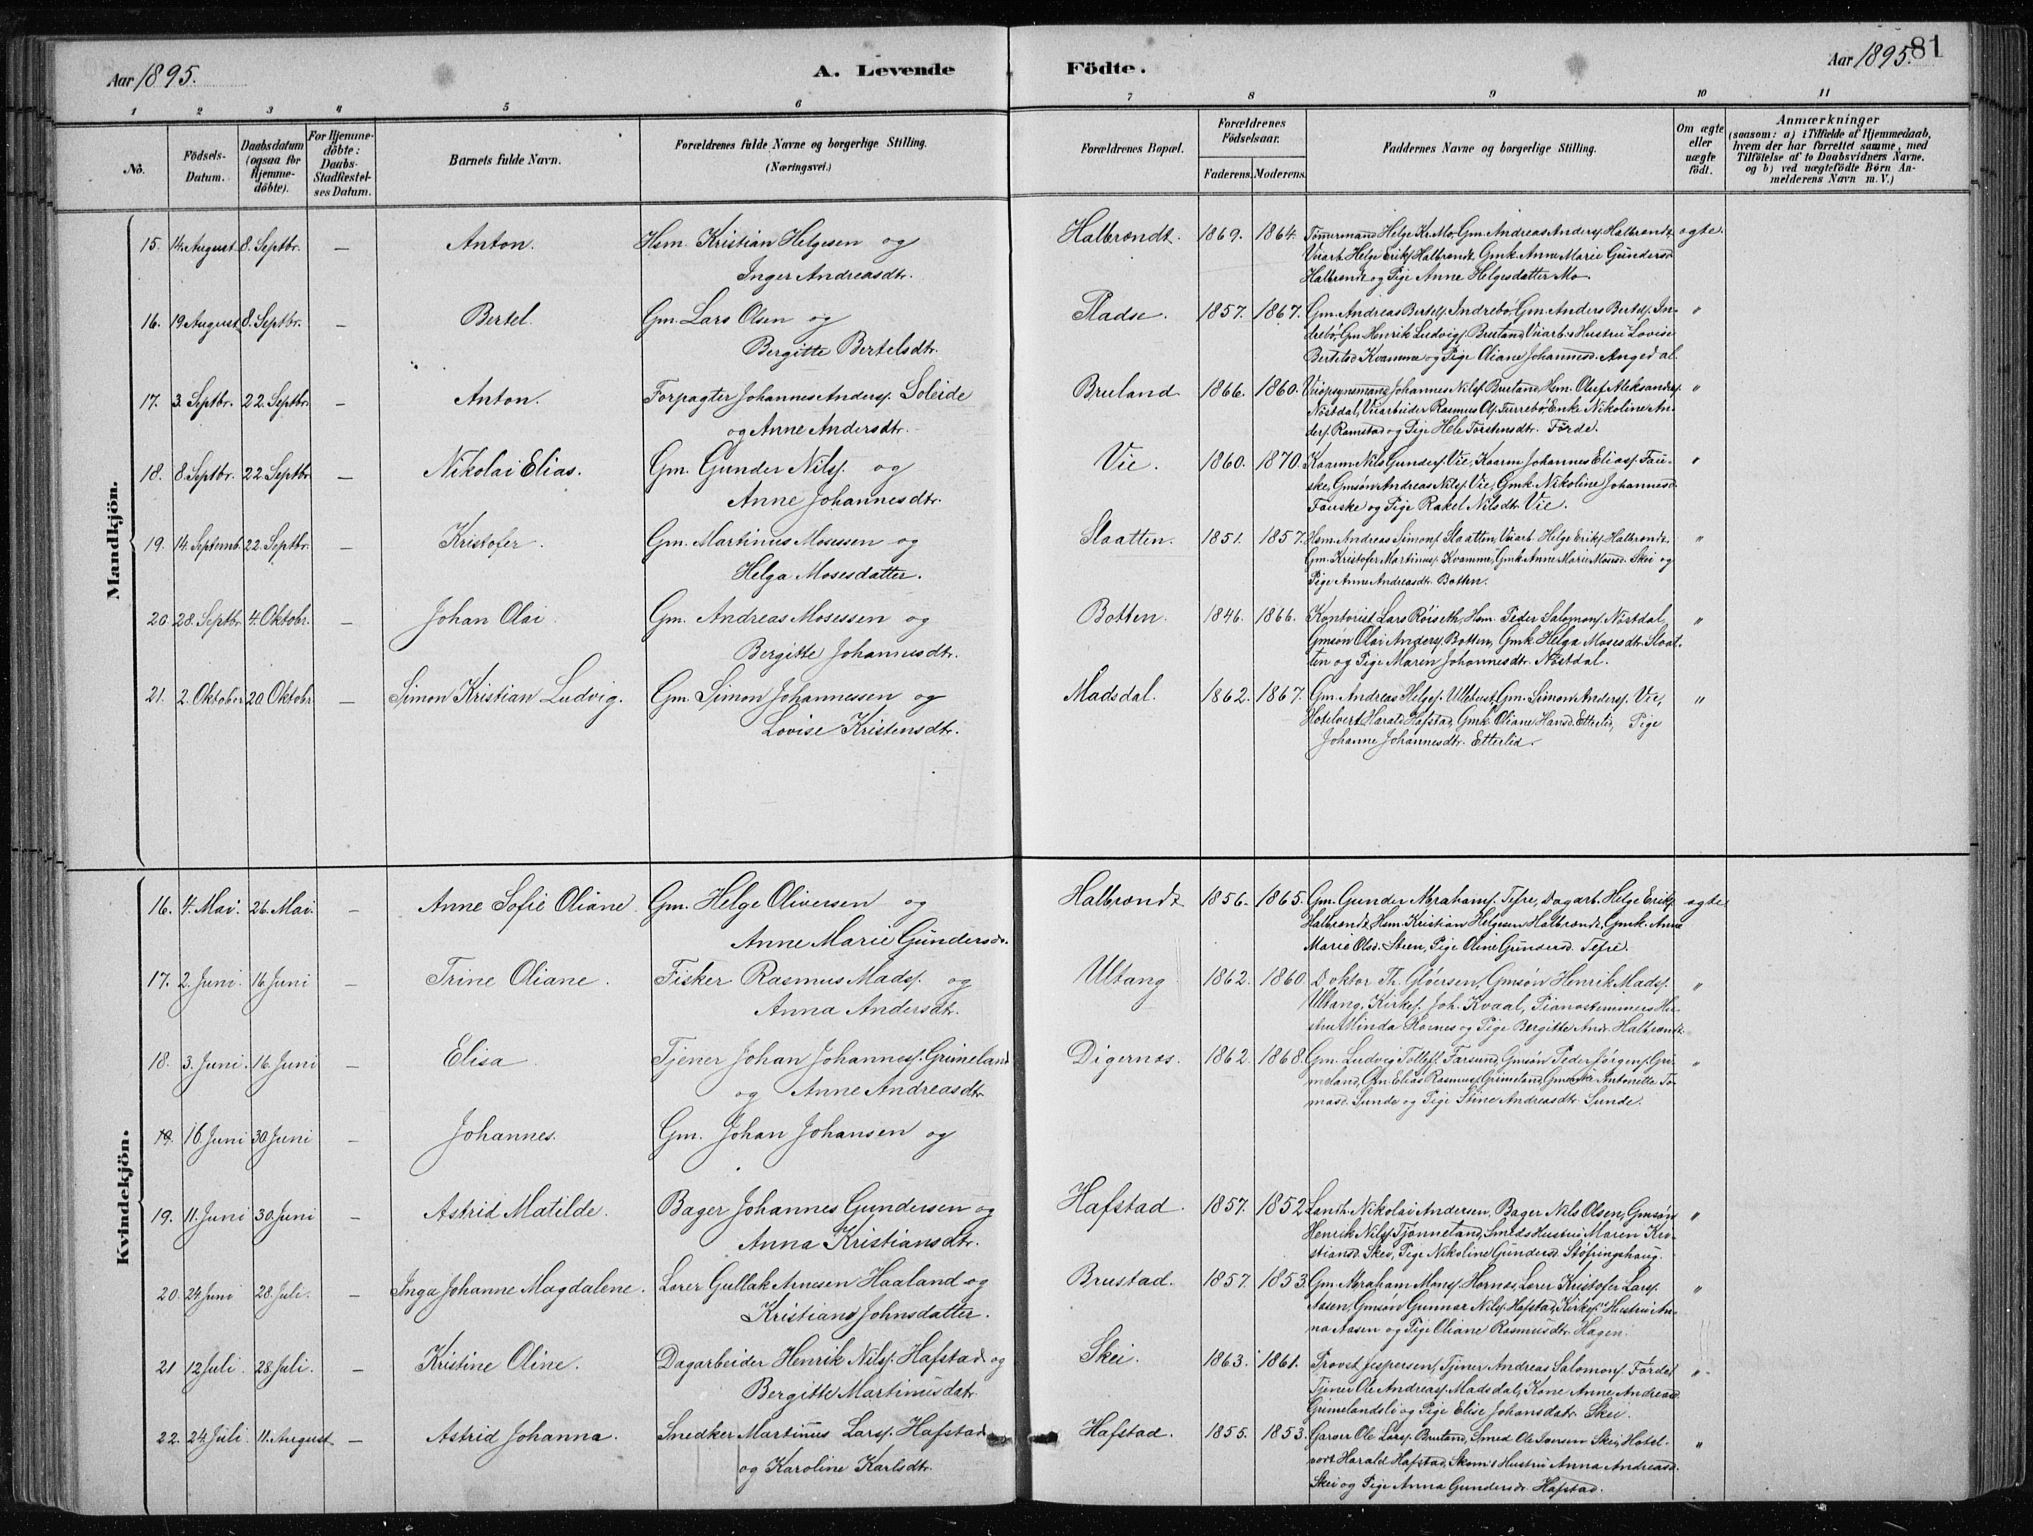 Aar 1895. A. Levende Födte. Aar 1895. 81
1 2 3 4 5 6 7 8 9 10 11
No. Födsels-Datum. Daabsdatum (ogsaa for Hjemmedöbte). For Hjemmedöbte: Daabs-Stadfæstelses Datum. Barnets fulde Navn. Forældrenes fulde Navne og borgerlige Stilling. (Næringsvei.) Forældrenes Bopæl. Forældrenes Födselsaar. Faderens. Moderens. Faddernes Navne og borgerlige Stilling. Om ægte eller uægte födt. Anmærkninger (saasom: a) i Tilfælde af Hjemmedaab, hvem der har forrettet samme, med Tilföielse af to Daabsvidners Navne. og b) ved uægtefödte Börn Anmelderens Navn m. V.)
Mandkjön.
15. 14 August 8. Septbr. — Anton. Hsm. Kristian Helgesen og Halbrendt. 1869. 1864. Tömermand Helge Kr. Mo, Gm. Andreas Anders. Halbrendt ægte.
Inger Andreasdtr. Vuarb. Helge Eriks. Halbrendt, Gmk. Anne Marie Gundersd.
Halbrendt og Pige Anne Helgesdatter Mo
16. 19 August 8. Septbr. — Bertel. Gm. Lars Olsen og Pladse. 1857. 1867. Gm. Andreas Bertels. Indrebö, Gm. Anders Bertels. In- "
Bergitte Bertelsdtr. drebö, Gm. Henrik Ludvigs. Bruland, Vuarb. Hustru Lovise
Bertelsd. Kvamme og Pige Oliane Johannesd. Angedal.
17. 3. Septbr. 22. Septbr. — Anton. Forpagter Johannes Anders. Soleide Bruland 1866. 1860. Veiopsynsmand Johannes Nils. Bruland, Hsm. Oluf Aleksanders. "
og Anne Andersdtr. Nöstdal, Vuarbeider Rasmus Ols. Furrebö, Enke Nikoline An-
ders. Ramstad og Pige Hele Torstensdtr. Förde.
18. 8. Septbr. 22. Septbr. — Nikolai Elias. Gm. Gunder Nils. og Vie. 1860. 1870. Kaarm. Nils Gunders. Vie, Kaarm. Johannes Elias. Fau- "
Anne Johannesdtr. ske, Gmsön Andreas Nils. Vie, Gmk. Nikoline Johannesd.
Fauske og Pige Rakel Nilsdtr. Vie.
19. 14. Septemb. 22. Septbr. — Kristofer. Gm. Martinus Mosesen og Slaatten. 1851. 1857. Hsm. Andreas Simons. Slaatten, Vuarb. Helge Eriks. Halbrendt, "
Helga Mosesdatter. Gm. Kristofer Martinus. Kvamme, Gmk. Anne Marie Monsd. Skei og
Pige Anne Andreasdtr. Botten.
20. 28. Septbr. 4. Oktobr. — Johan Olai. Gm. Andreas Mosessen og Botten. 1846. 1866. Kontorist Lars Röiseth, Hsm. Peder Salomons. Nöstdal, "
Bergitte Johannesdtr. Gmsön Olai Anders. Botten, Gmk. Helga Mosesdtr. Slaat-
ten og Pige Maren Johannesdtr. Nöstdal.
21. 2. Oktober 20. Oktobr. — Simon Kristian Ludvig. Gm. Simon Johannessen og Madsdal. 1862. 1867. Gm. Andreas Helges. Ulltvedt, Gm. Simon Anders. Vie, "
Lovise Kristensdtr. Hotelvert Harald Hafstad, Gmk. Oliane Hansd. Etterlid, Pige
Johanne Johannesdtr. Etterlid.
Kvindekjön.
16. 4. Mai. 26. Mai. — Anne Sofie Oliane. Gm. Helge Oliversen og Halbrendt 1856. 1865. Gm. Gunder Abrahams. Tefre, Dagarb. Helge Eriks. ægte
Anne Marie Gundersd. Halbrendt, Hsm. Kristian Helgesen Halbrendt, Gmk. Anne
Marie Olsd. Steen, Pige Oline Gundersd. Tefre.
17. 2. Juni. 16 Juni — Trine Oliane. Fisker Rasmus Mads. og Ultang 1862. 1860. Doktor Th. Glöersen, Gmsön Henrik Mads. "
Anna Andersdtr. Ultang, Kirkes. Joh. Kvaal, Pianostemmers Hu-
stru Minda Hornes og Pige Bergitte Andr. Halbrendt.
18. 3. Juni. 16. Juni — Elisa Tjener Johan Johannes. Grimeland Digernes. 1862. 1868. Gm. Ludvig Tollefs. Farsund, Gmsön Peder Jörgens. Gri- "
og Anne Andreasdtr. meland, Gm. Elias Rasmus. Grimeland, Gmk. Antonette To-
masd. Sunde og Pige Stine Andreasdtr. Sunde.
19. 16. Juni 30. Juni — Johannes. Gm. Johan Johansen og
19. 11. Juni 30. Juni — Astrid Matilde. Bager Johannes Gundersen og Hafstad. 1857. 1852. Lanth. Nikolai Andersen, Bager Nils Olsen, Gmsön "
Anna Kristiansdtr. Henrik Nils. Tjönneland, Smeds Hustru Maren Kri-
stiansd. Skei, Pige Nikoline Gundersd. Stöfringshaug.
20. 24 Juni 28. Juli. — Inga Johanne Magdalene. Lærer Gullak Arnesen Haaland og Brustad. 1857. 1853. Gm. Abraham Mons. Hornes, Lærer Kristofer Lars. "
Kristiane Johnsdatter. Aasen, Gmsön Gunnar Nils. Hafstad, Kirkes. Hustru An-
na Aasen og Pige Oliane Rasmusdtr. Hagen.
21 12 Juli. 28. Juli. — Kristine Oline. Dagarbeider Henrik Nils. Hafstad og Skei. 1863. 1861. Provst Jespersen, Tjener Andreas Salomons. Förde, "
Bergitte Martinusdatr. Tjener Ole Andreas. Madsdal, Kone Anne Andreasd.
Grimelandsli og Pige Elise Johansdatr. Skei.
22. 24. Juli. 11. August — Astrid Johanna. Snedker Martinus Lars. Hafstad Hafstad. 1855. 1853. Garver Ole Lars. Bruland, Smed Ole Jansen Skei, Hotel- "
og Karoline Karlsdtr. vert Harald Hafstad, Skom's Hustru Anna Andreasd.
Skei og Pige Anna Gundersdr. Hafstad.